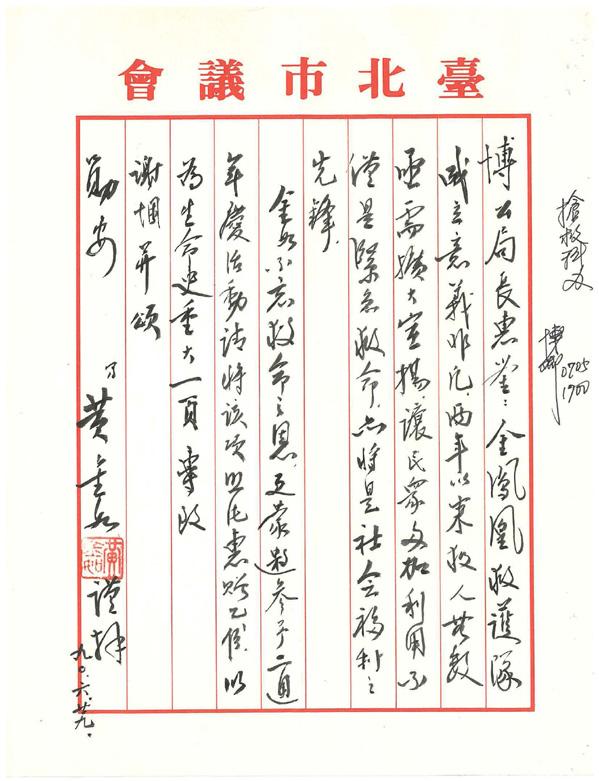 臺北市議會
博公局長惠鑒：金鳳凰救護隊
成立意義非凡，兩年以來救人無數
亟需擴大宣揚，讓民眾多加利用不
僅是緊急救命，亦將是社會福利之
先鋒。
金如不忘救命之恩，又蒙邀參予二週
年慶活動請將該項照片惠贈乙份，以
為生命史重大一頁 專此
謝悃 并頌
勛安
黃金如
謹拜
九〇.六.廿九.
搶救科及
0705
1900